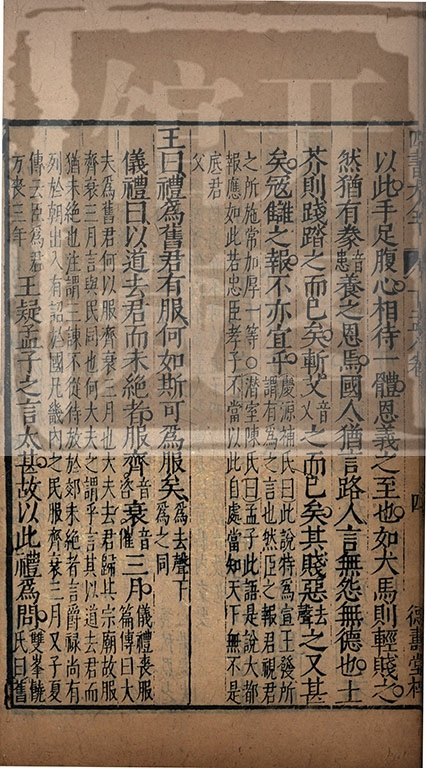 以此手足腹心相待一體恩義之至也如犬馬則輕賤之
然猶有豢音患養之恩焉國人猶言路人言無怨無德也土
芥則踐踏之而已矣斬艾音乂之而已矣其賤惡去聲之又甚
矣寇讎之報不亦宜乎慶源輔氏曰此說特爲宣王發所
謂有爲之言也然臣之報君視君
之所施常加厚一等○潛室陳氏曰孟子此語是說大都
報應如此若忠臣孝子不當以此自處當知天下無不是
底君
父
王曰禮爲舊君有服何如斯可爲服矣爲去聲下
爲之同
儀禮曰以道去君而未絶者服齊音咨衰音催三月儀禮喪服
篇傳曰大
夫爲舊君何以服齊衰三月也大夫去君歸其宗廟故服
齊衰三月言與民同也何大夫之謂乎言其以道去君而
猶未絶也注謂三諫不從待放於郊未絶者言爵祿尚有
列於朝出入有詔於國凡畿内之民服齊衰三月又子夏
傳云臣爲君
方喪三年
王疑孟子之言太甚故以此禮爲問雙峯饒
氏曰舊
四
德壽堂梓